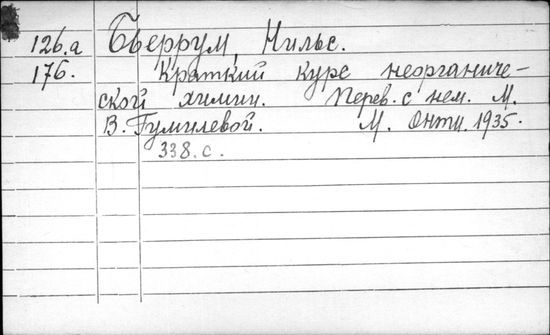 126.а Бьеррум, Нильс.
176. Краткий курс неорганиче-
ской химии. Перев. с нем. М.
В. Гумилевой. М. Онти. 1935.
338. с.